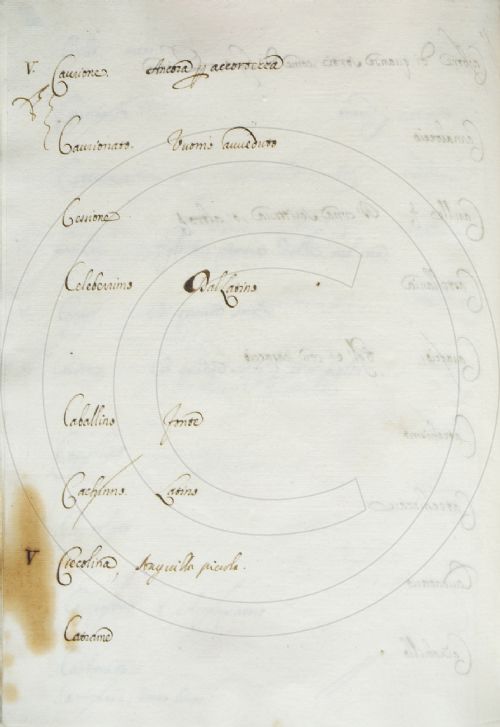 V. Cauzione. Ancora per accortezza
Cauzionato. Huomo avveduto
Cessione
Celeberrimo Dal Latino
Caballino fonte
Cachinno. Latino
V Ciecolina, Anguilla piccola.
Catrame